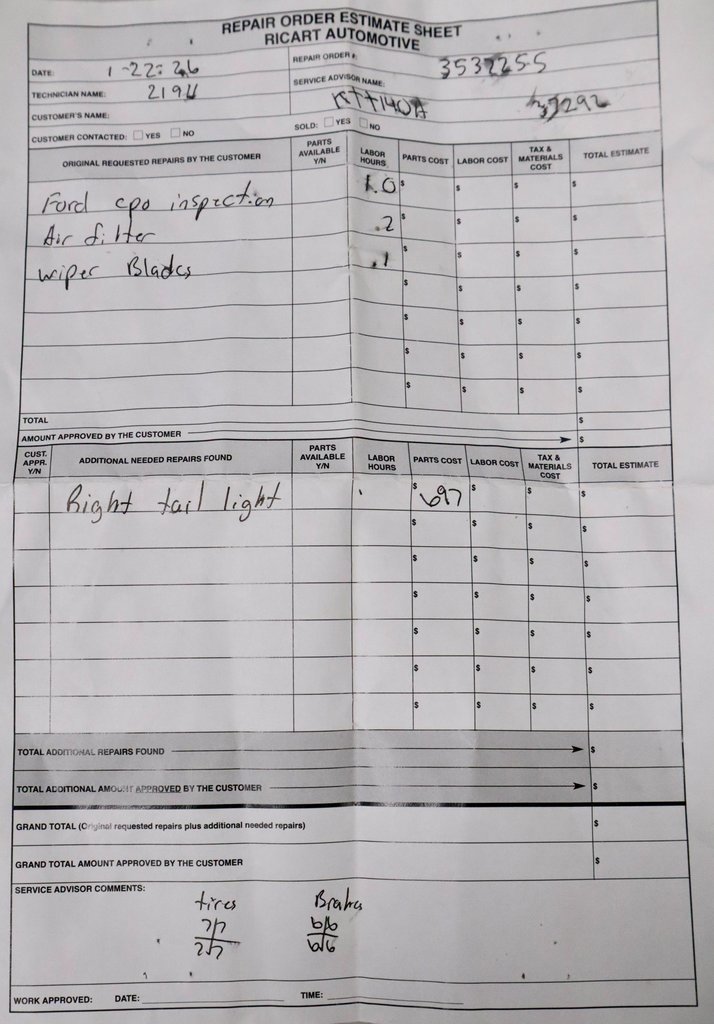 REPAIR ORDER ESTIMATE SHEET
RICART AUTOMOTIVE
DATE: 1-22-26
REPAIR ORDER #:
TECHNICIAN NAME: 2194
SERVICE ADVISOR NAME:
CUSTOMER'S NAME:
CUSTOMER CONTACTED: YES NO
SOLD: YES NO
ORIGINAL REQUESTED REPAIRS BY THE CUSTOMER PARTS AVAILABLE Y/N LABOR HOURS PARTS COST LABOR COST TAX & MATERIALS COST TOTAL ESTIMATE
Ford cpo inspection 1.0 $ $ $ $
Air filter .2 $ $ $ $
wiper Blades .1 $ $ $ $
$ $ $ $
$ $ $ $
$ $ $ $
$ $ $ $
TOTAL $
AMOUNT APPROVED BY THE CUSTOMER $
CUST. APPR. Y/N ADDITIONAL NEEDED REPAIRS FOUND PARTS AVAILABLE Y/N LABOR HOURS PARTS COST LABOR COST TAX & MATERIALS COST TOTAL ESTIMATE
Right tail light $ 697 $ $ $
$ $ $ $
$ $ $ $
$ $ $ $
$ $ $ $
$ $ $ $
$ $ $ $
TOTAL ADDITIONAL REPAIRS FOUND $
TOTAL ADDITIONAL AMOUNT APPROVED BY THE CUSTOMER $
GRAND TOTAL (Original requested repairs plus additional needed repairs) $
GRAND TOTAL AMOUNT APPROVED BY THE CUSTOMER $
SERVICE ADVISOR COMMENTS:
tires Brakes
7/7 6/6
7/7 6/6
WORK APPROVED: DATE: TIME: